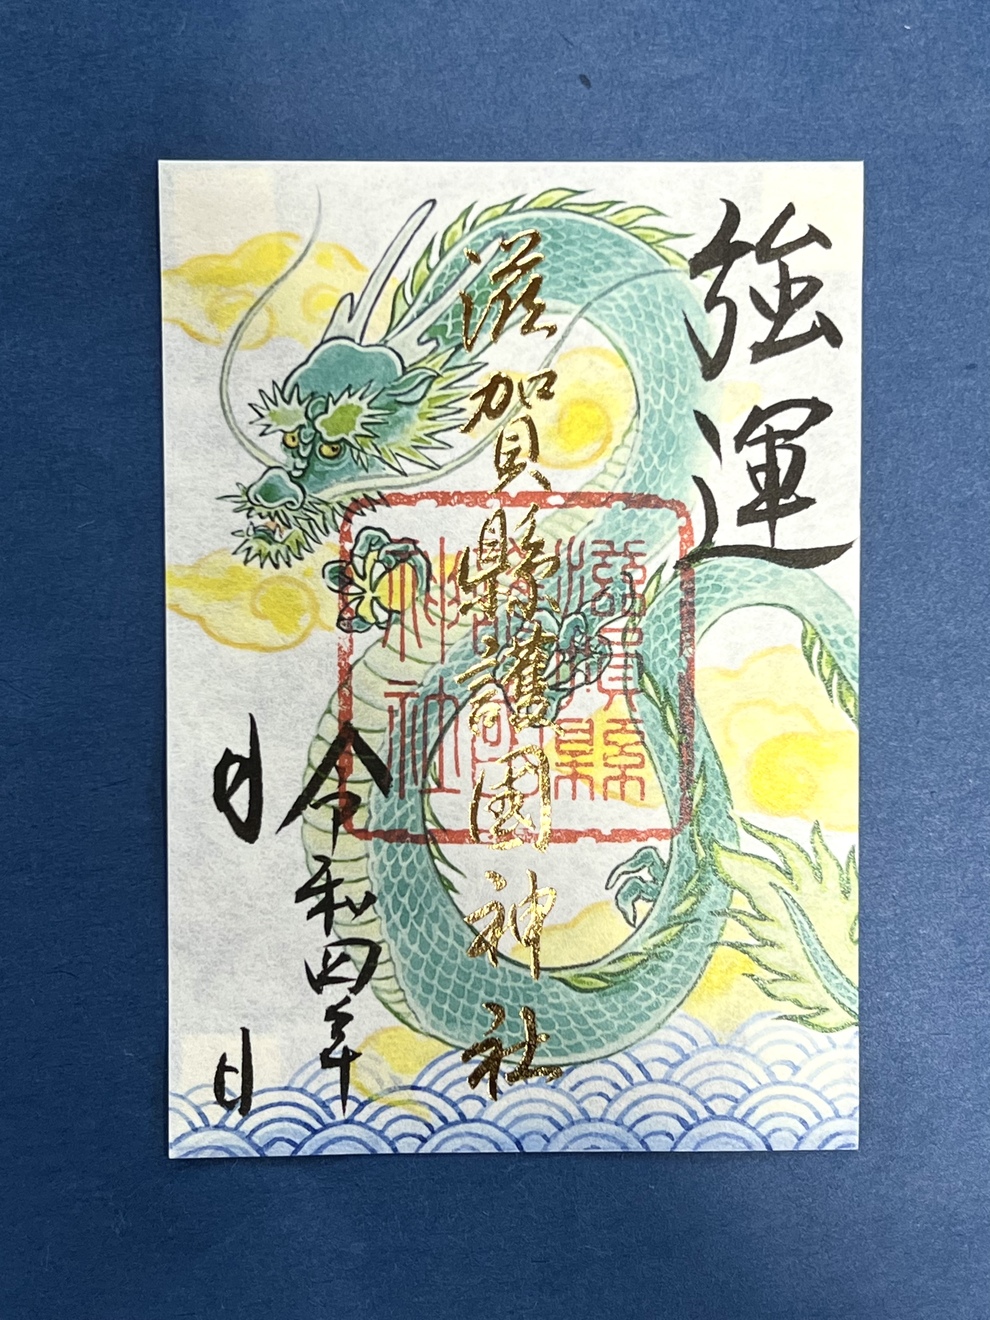 強運
滋賀縣護國神社
滋賀縣
護國
神社
令和四年
月 日